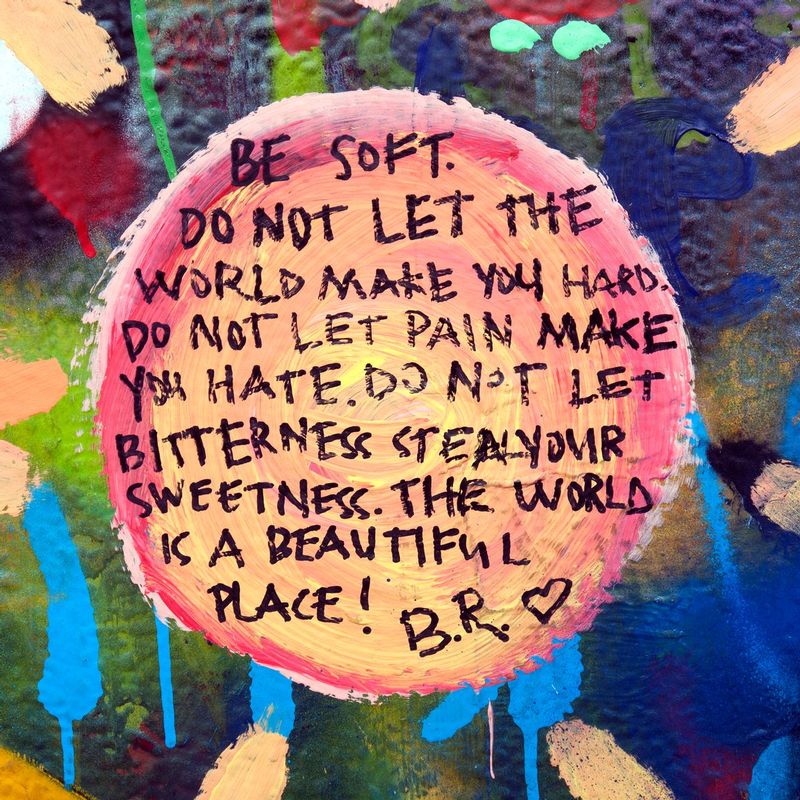 BE SOFT.
DO NOT LET THE
WORLD MAKE YOU HARD.
DO NOT LET PAIN MAKE
YOU HATE. DO NOT LET
BITTERNESS STEAL YOUR
SWEETNESS. THE WORLD
IS A BEAUTIFUL
PLACE! B.R. ♡